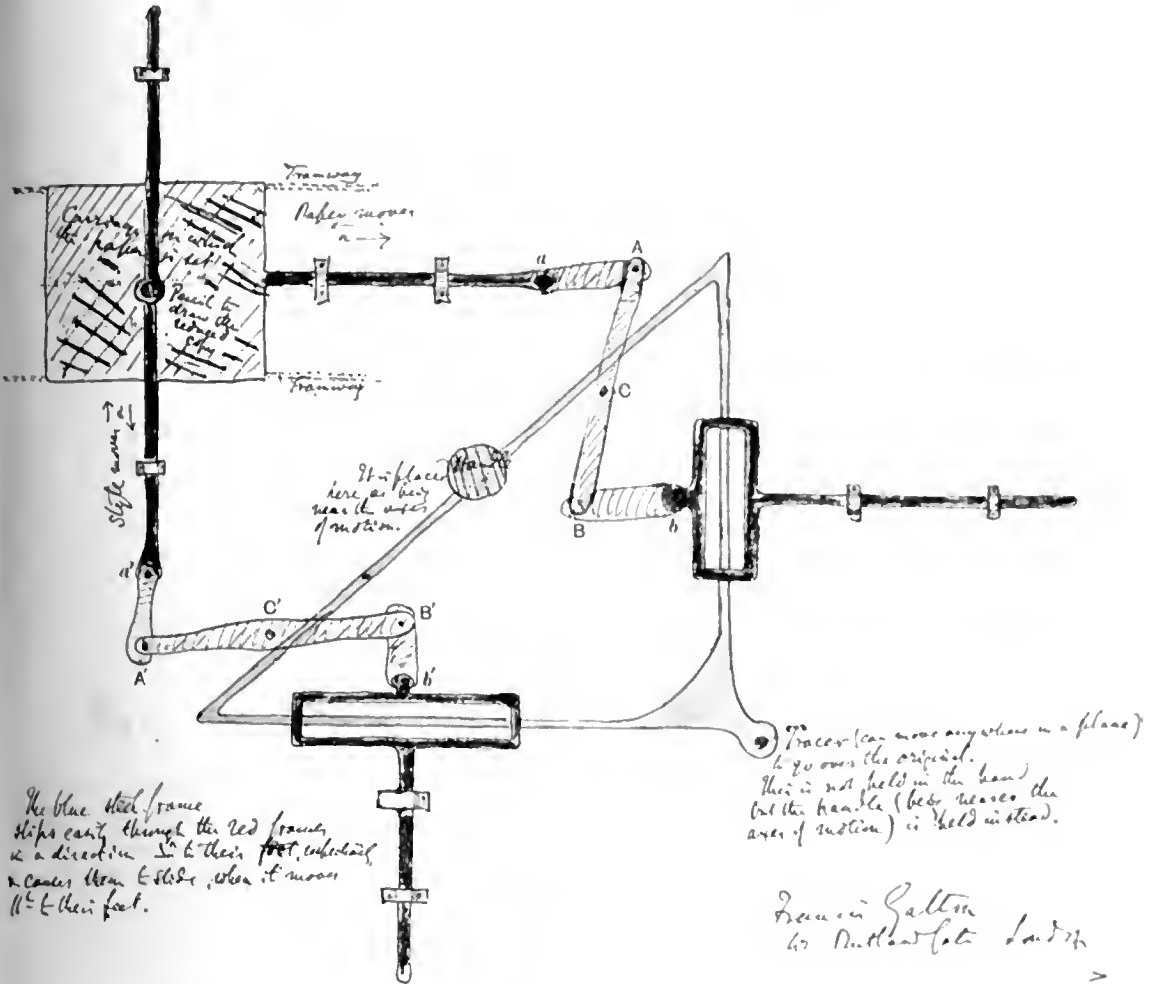 Tramway
Paper moves
Carriage on which
the paper is set
Pencil to
draw the
reduced
copy
Tramway
Style moves
a
A
C
B
b
It is placed
here, as being
near the axes
of motion.
Handle
a'
A'
C'
B'
b'
Tracer (can move anywhere in a plane)
to go over the original.
This is not held in the hand
but the handle (being nearer the
axes of motion) is held instead.
The blue steel frame
slips easily through the red frames
in a direction to their feet, respectively,
& causes them to slide, when it moves
to their feet.
Francis Galton
42 Rutland Gate London